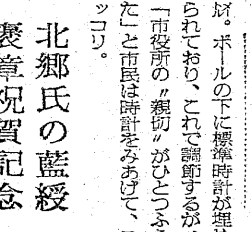 尉。ポールの下に標準時計が埋
られており、これで調節するが
「市役所の〝親切〟がひとつふ
た」と市民は時計をみあげて、
ッコリ。
北郷氏の藍綬
褒章祝賀記念